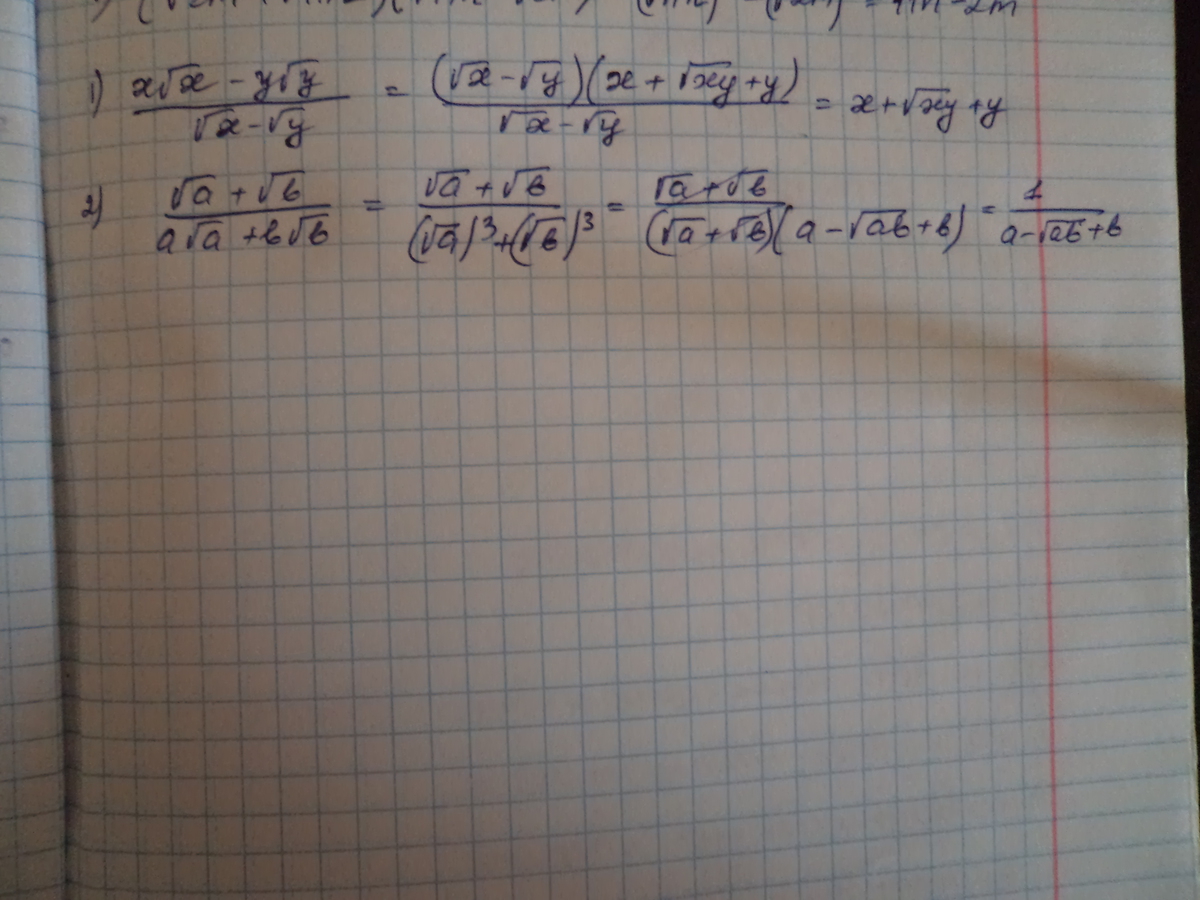 = 11n - 2m
1) (x√x - y√y)/(√x - √y) = ((√x - √y)(x + √xy + y))/(√x - √y) = x + √xy + y
2) (√a + √b)/(a√a + b√b) = (√a + √b)/((√a)³ + (√b)³) = (√a + √b)/((√a + √b)(a - √ab + b)) = 1/(a - √ab + b)